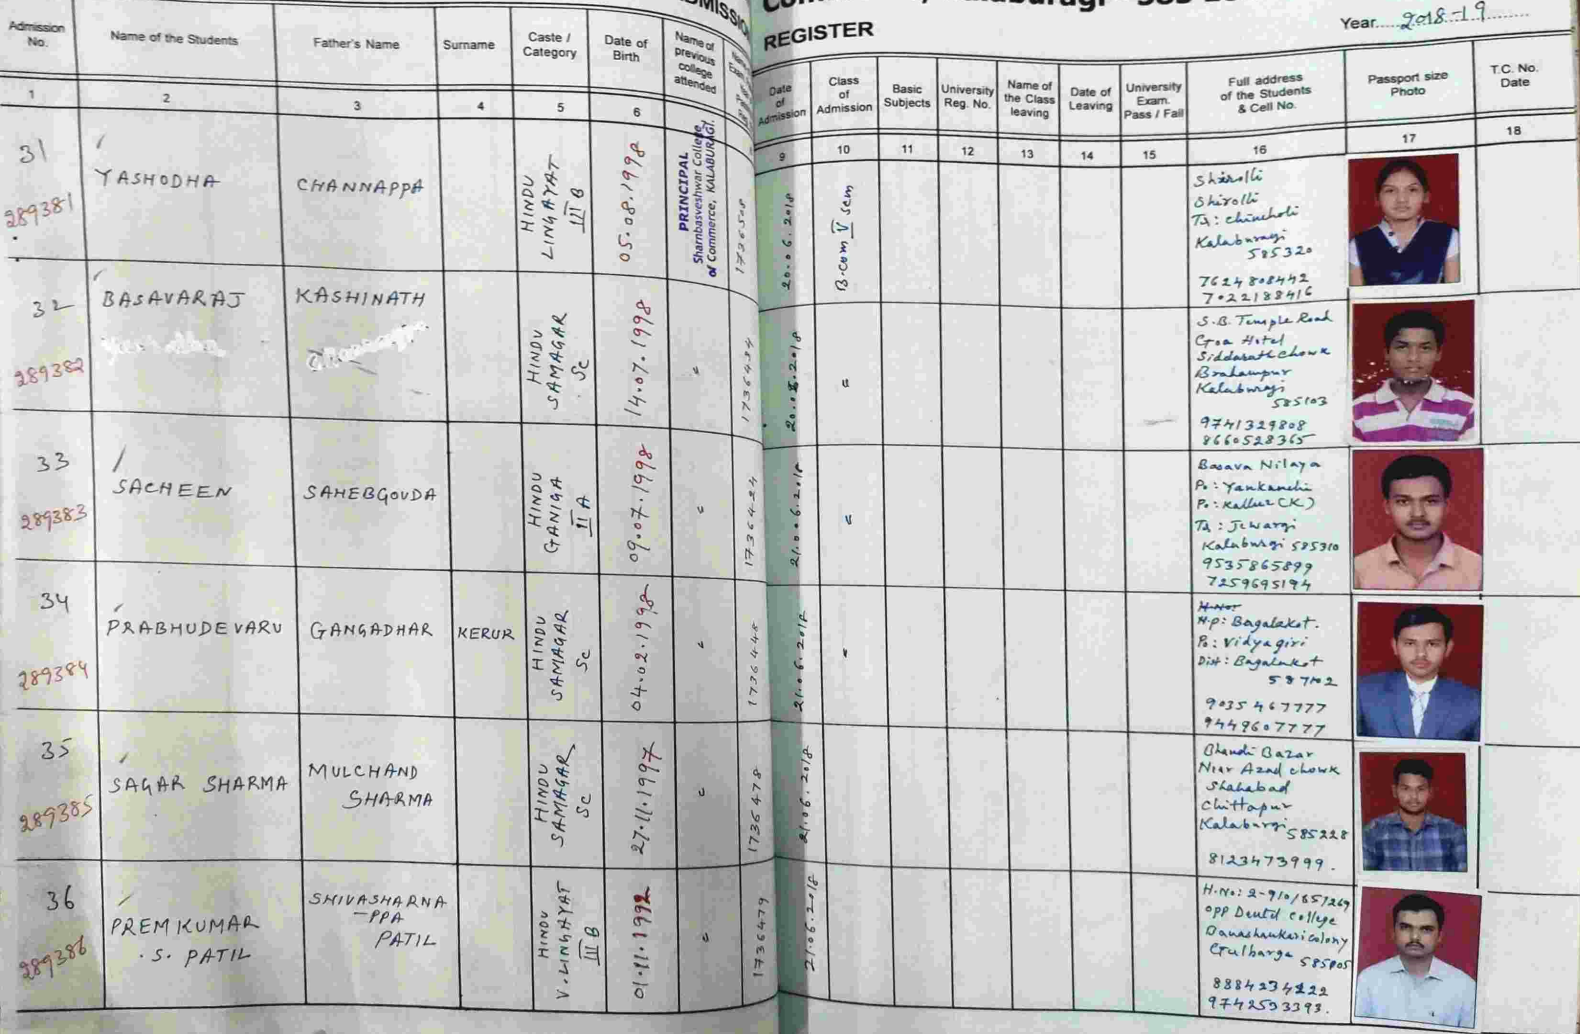 REGISTER
Year 2018-19
Admission No.
Name of the Students
Father's Name
Surname
Caste / Category
Date of Birth
Name of previous college attended
Date of Admission
Class of Admission
Basic Subjects
University Reg. No.
Name of the Class leaving
Date of Leaving
University Exam. Pass / Fail
Full address of the Students & Cell No.
Passport size Photo
T.C. No. Date
1 2 3 4 5 6
9 10 11 12 13 14 15 16 17 18
31
289381
YASHODHA
CHANNAPPA
HINDU
LINGAYAT
III B
05.08.1998
PRINCIPAL
Sharnbasveshwar College
of Commerce, KALABURAGI.
1736508
20.06.2018
B.com V sem
Shirolli
Shirolli
Tq: chincholi
Kalaburagi
585320
7624808442
7022188416
32
289382
BASAVARAJ
KASHINATH
HINDU
SAMAGAR
SC
14.07.1998
"
1736434
20.06.2018
"
S.B. Temple Road
Goa Hotel
Siddarath chowk
Brahampur
Kalaburagi
585103
9741329808
8660528365
33
289383
SACHEEN
SAHEBGOUDA
HINDU
GANIGA
II A
09.07.1998
"
1736424
21.06.2018
"
Basava Nilaya
Po: Yankanchi
Po: Kallur (K)
Tq: Jewargi
Kalaburgi 585310
9535865899
7259695194
34
289384
PRABHUDEVARU
GANGADHAR
KERUR
HINDU
SAMAGAR
SC
04.02.1998
"
1736448
21.06.2018
"
H.p: Bagalakot.
Po: Vidyagiri
Dist: Bagalakot
587102
9035467777
9449607777
35
289385
SAGAR SHARMA
MULCHAND
SHARMA
HINDU
SAMAGAR
SC
27.11.1997
"
1736478
21.06.2018
Bhandi Bazar
Near Azad chowk
Shahabad
Chittapur
Kalaburgi 585228
8123473999.
36
289386
PREMKUMAR
.S. PATIL
SHIVASHARNA
-PPA
PATIL
HINDU
V.LINGAYAT
III B
01.11.1992
"
1736479
21.06.2018
opp Dental College
Banashankari colony
Gulbarga 585105
8884234222
9742533393.